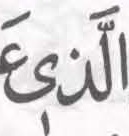 الَّذٖى عَ